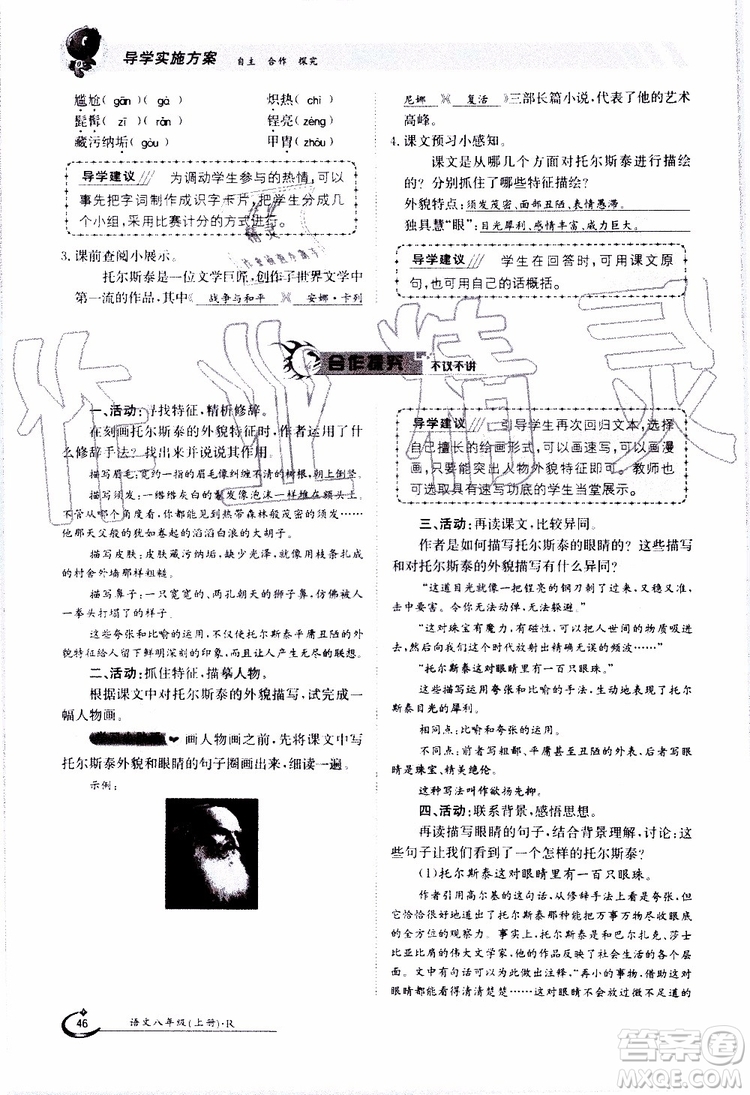 导学实施方案 自主 合作 探究
尴尬(gān)(gà) 炽热(chì)
髭髯(zī)(rán) 锃亮(zèng)
藏污纳垢(gòu) 甲胄(zhòu)
导学建议 为调动学生参与的热情,可以
事先把字词制作成识字卡片,把学生分成几
个小组,采用比赛计分的方式进行。
3. 课前查阅小展示。
托尔斯泰是一位文学巨匠,创作了世界文学中
第一流的作品,其中《战争与和平》《安娜·卡列
尼娜》《复活》三部长篇小说,是他的艺术
高峰。
4. 课文预习小感知。
课文是从哪几个方面对托尔斯泰进行描绘
的?分别抓住了哪些特征描绘的?
外貌特点:须发茂密、面部丑陋、表情愚滞。
独具慧“眼”:目光犀利、感情丰富、威力巨大。
导学建议 学生在回答时,可用课文原
句,也可用自己的话概括。
合作探究 不议不讲
一、活动:寻找特征,精析修辞。
在刻画托尔斯泰的外貌特征时,作者运用了什
么修辞手法?找出来并说说表达作用。
描写眉毛:宽约一指的眉毛像纠缠不清的树根,朝上倒竖。
描写须发:一绺绺灰白的鬈发像泡沫一样堆在额头上。
不管从哪个角度看,你都能见到热带森林般茂密的须发……
他那天父般的犹如卷起的滔滔白浪的大胡子。
描写皮肤:皮肤藏污纳垢,缺少光泽,就像用枝条扎成
的村舍外墙那样粗糙。
描写鼻子:一只宽宽的、两孔朝天的狮子鼻,仿佛被人一
拳头打塌了的样子。
这些夸张和比喻的运用,不仅使托尔斯泰平庸丑陋的外
貌给读者留下鲜明深刻的印象,而且让人产生广阔的联想。
二、活动:抓住特征,描摹人物。
根据课文中对托尔斯泰的外貌描写,试完成一
幅人物画。
画人物画之前,先将课文中写
托尔斯泰外貌和眼睛的句子圈画出来,细读一遍。
示例:
导学建议 引导学生再次回归文本,选择
自己擅长的绘画形式,可以画速写,可以画漫
画,只要能突出人物外貌特征即可。教师也
可选取具有速写功底的学生当堂展示。
三、活动:再读课文,比较异同。
作者是如何描写托尔斯泰的眼睛的?这些描写
和对托尔斯泰的外貌描写有什么异同?
“这道目光就像一把锃亮的钢刀刺了过来,又稳又准,击
中要害。令你无法动弹,无法躲避。”
“这对珠宝有魔力,有磁性,可以把人世间的物质吸进
去,然后向我们这个时代放射出精确无误的频波……”
“托尔斯泰这对眼睛里有一百只眼珠。”
这些描写运用夸张和比喻的手法,生动形象地表现了托
尔斯泰目光的犀利。
相同点:比喻和夸张的运用。
不同点:前者写粗鄙、平庸甚至丑陋的外表,后者写其眼
睛是珠宝、精美绝伦。
这种写法叫作欲扬先抑。
四、活动:联系背景,感悟思想。
再读描写眼睛的句子,结合背景理解,讨论:这
些句子让我们看到了一个怎样的托尔斯泰?
(1)托尔斯泰这对眼睛里有一百只眼珠。
作者引用高尔基的这句话,从修辞手法上看是夸张,但
它恰恰很好地道出了托尔斯泰那种能把万事万物尽收眼底
的全方位的观察力。作为和巴尔扎克、莎士
比亚比肩的伟大文学家,他的作品反映了社会生活的方方面
面。文中有句话可以做出注释,“再小的事物,借助这对
眼睛也能看得清清楚楚……展示出来”,可以说,借助这对
46 语文八年级(上册)·R
作业精灵
答案圈
MXQE.COM